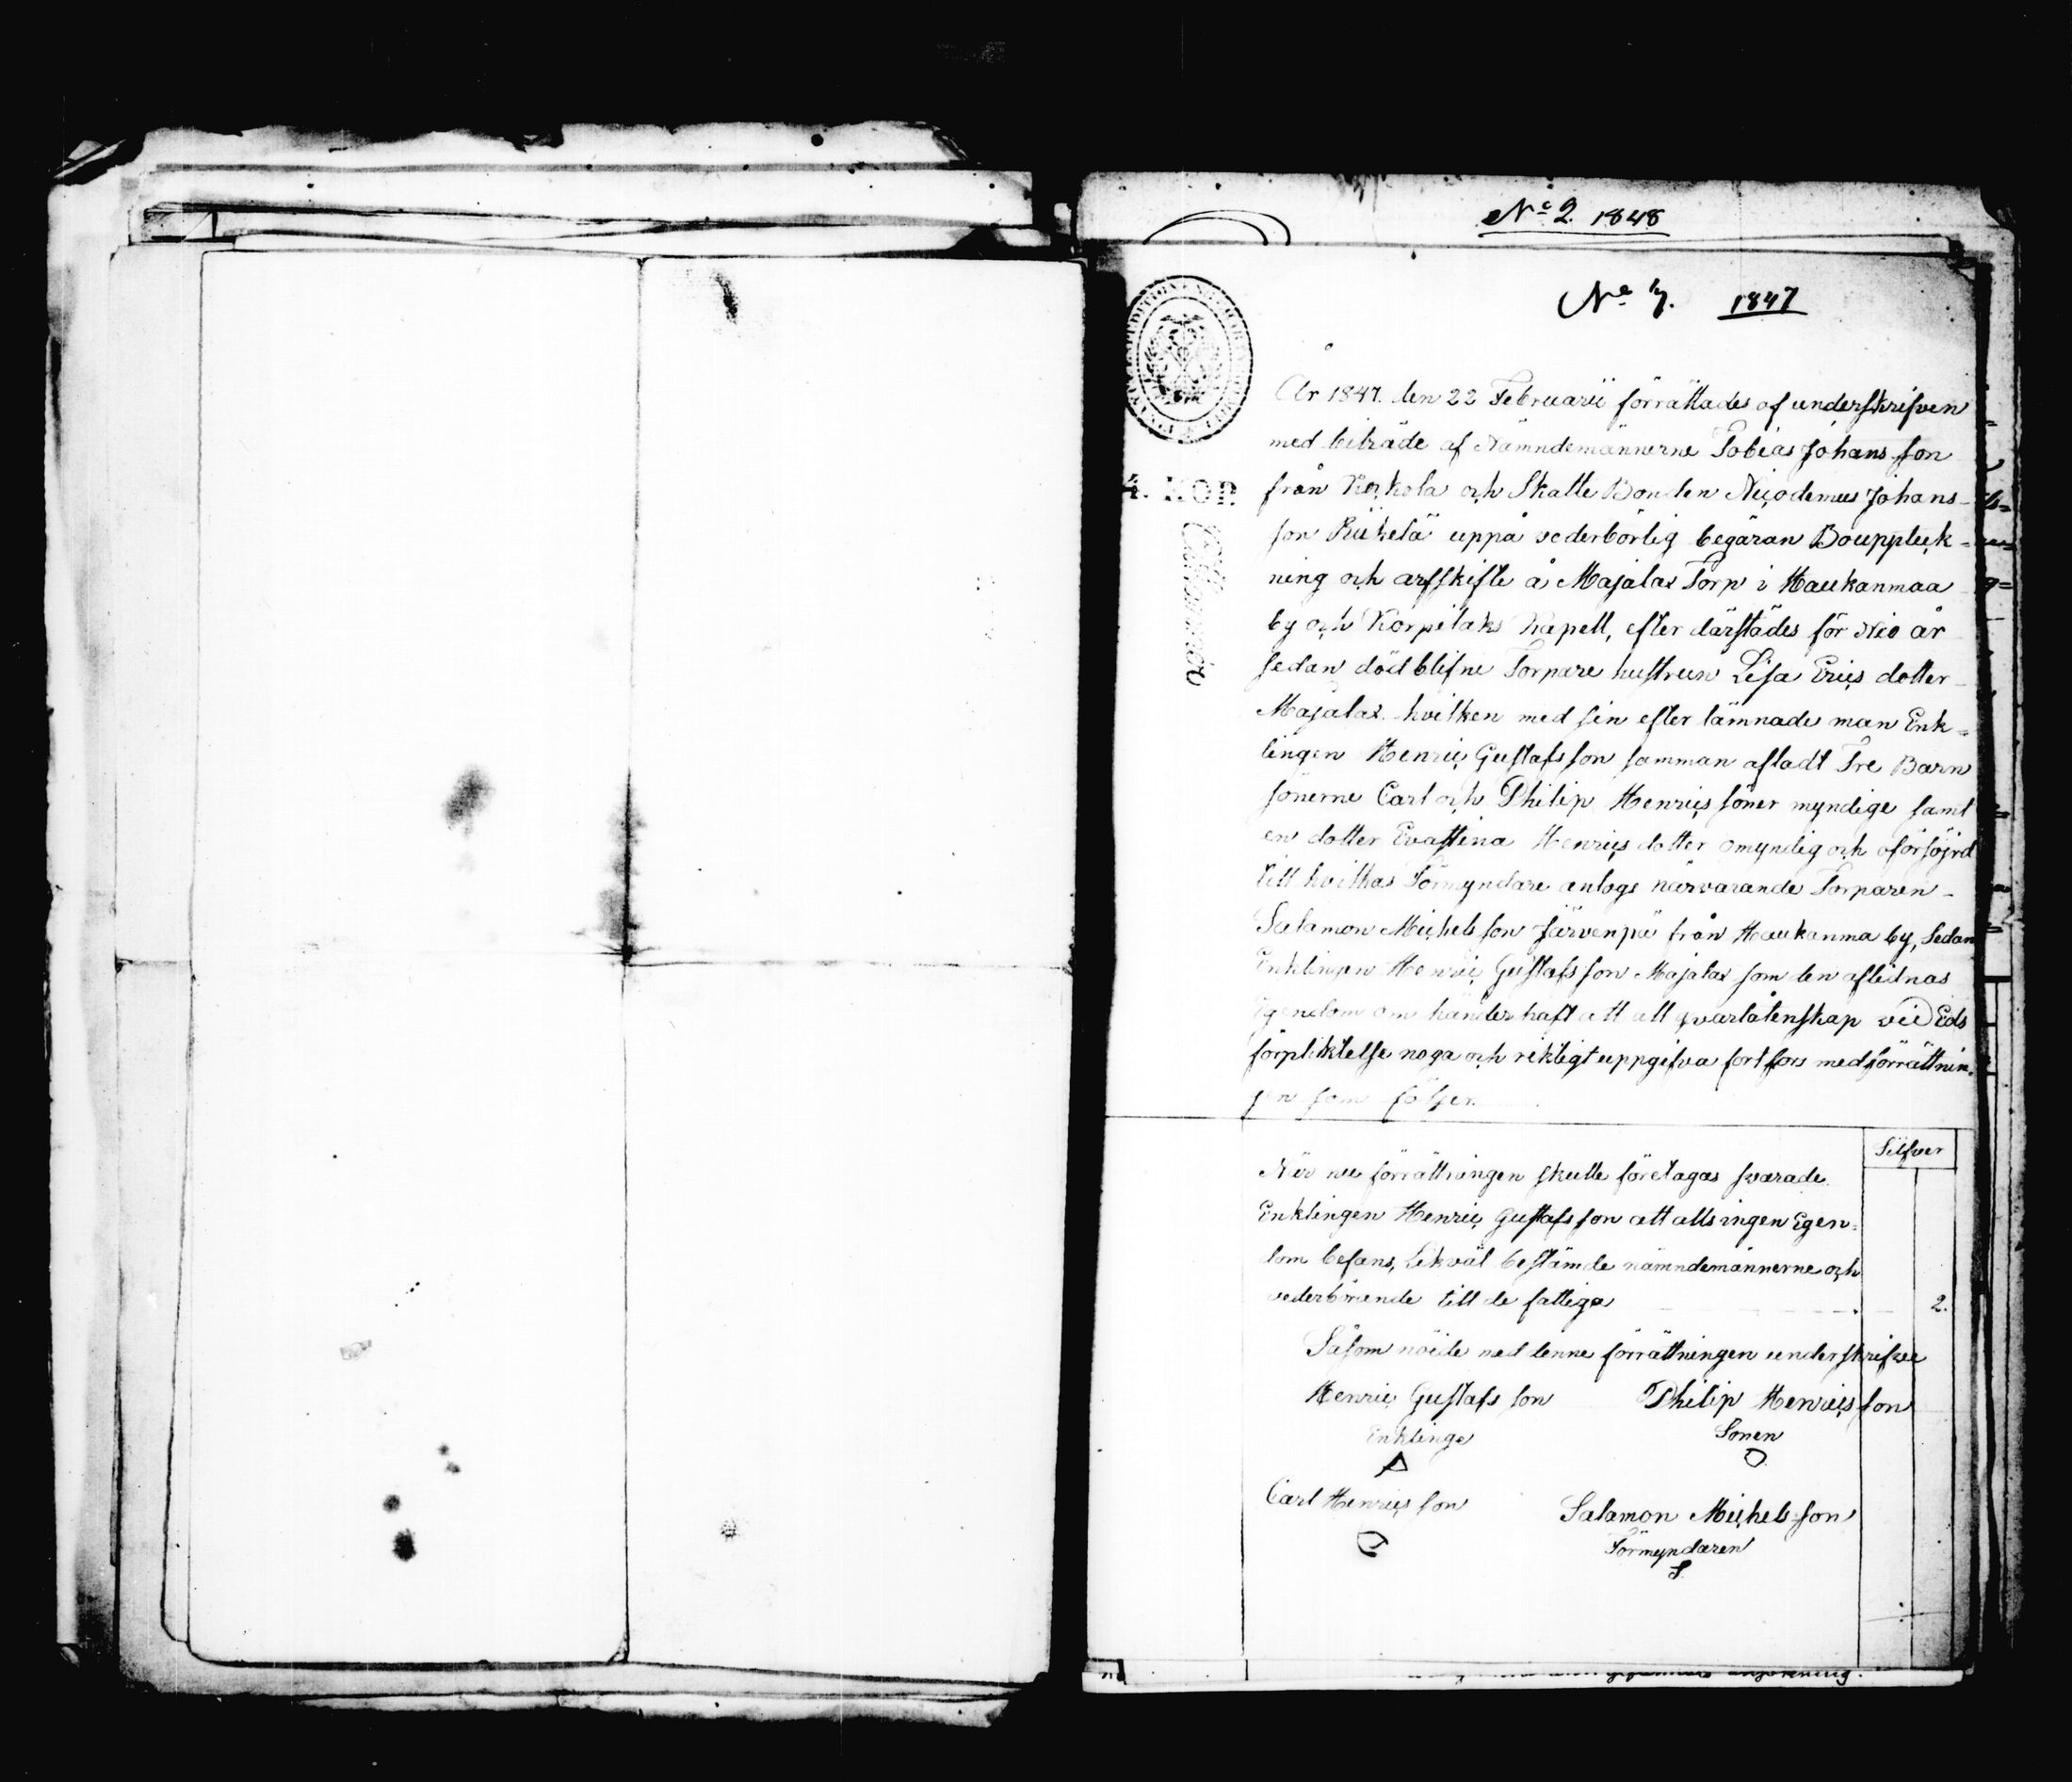 No 2. 1848
No 7. 1847
4. KOP.
År 1847. den 22 Februarii förrättades af underskrifven
med biträde af Nämndemännerne Tobias Johans son
från Korkola och Skatte Bonden Nicodemus Johans-
son Riihelä uppå vederbörlig begäran Bouppteck-
ning och arfskifte å Majalax Torp i Haukanmaa
by och Korpilaks Kapell, efter därstädes för Nio år
sedan död blifne Torpare hustrun Lisa Erics dotter
Majalax hvilken med sin efter lämnade man Enk-
lingen Henric Gustafs son samman afladt Tre Barn
sönerne Carl och Philip Henrics söner myndige samt
en dotter Evastina Henrics dotter omyndig och oförsöjrd
till hvilkas Förmyndare antogs närvarande Torparen
Salamon Michels son Järvenpä från Haukanma by, Sedan
Enklingen Henric Gustafs son Majalax som den aflidnas
Egendom om händer haft att all qvarlåtenskap vid Eds
förpliktelse noga och riktigt uppgifva fortfors med förrättnin-
gen som följer.
Silfver
När nu förrättningen skulle företagas svarade
Enklingen Henric Gustafs son att alls ingen Egen-
dom befans, Likväl bestämde nämndemännerne och
vederbörande till de fattiga 2.
Såsom nöide med denne förrättningen underskrifve
Henric Gustafs son Philip Henrics son
Enklinge Sonen
Carl Henrics son Salamon Michels son
Förmyndaren
S.